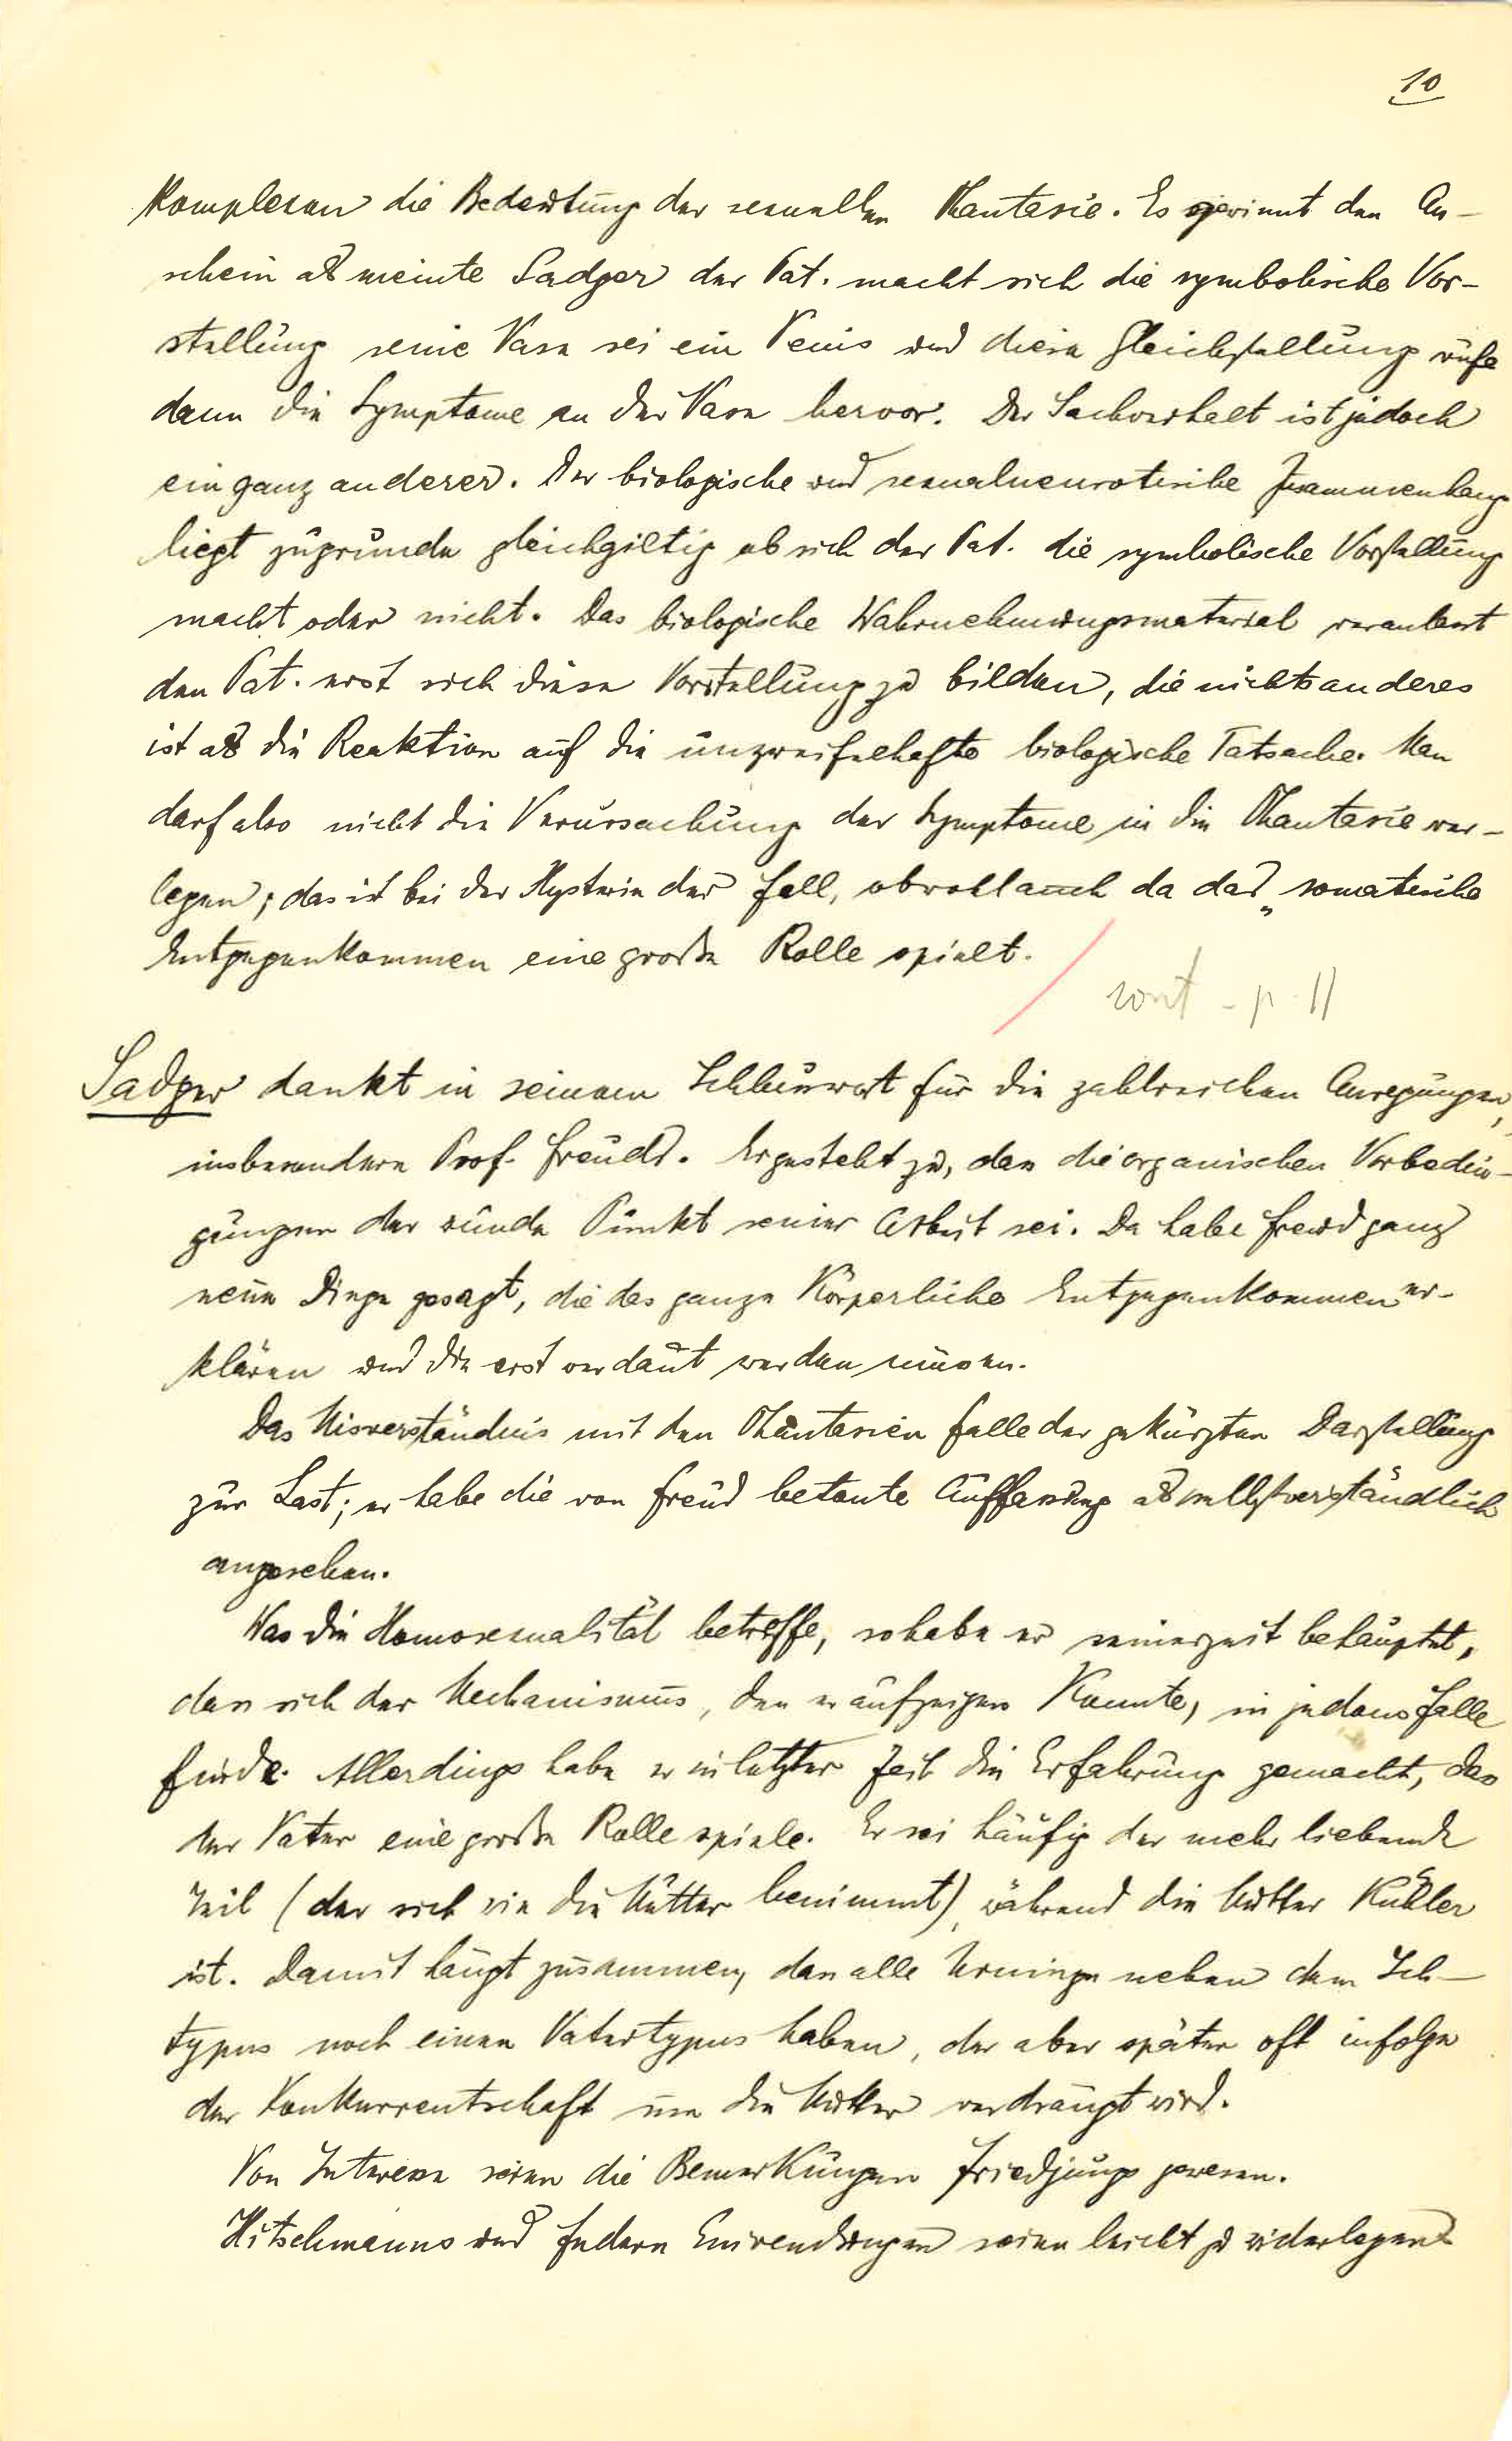 10
Komplexen die Bedeutung der sexuellen Phantasie. Es gewinnt den An-
schein als meinte Sadger der Pat. macht sich die symbolische Vor-
stellung seine Nase sei ein Penis und diese Gleichstellung rufe
dann die Symptome an der Nase hervor. Der Sachverhalt ist jedoch
ein ganz anderer. Der biologische und sexualneurotische Zusammenhang
liegt zugrunde gleichgiltig ob sich der Pat. die symbolische Vorstellung
macht oder nicht. Das biologische Wahrnehmungsmaterial veranlasst
den Pat. erst sich diese Vorstellung zu bilden, die nichts anderes
ist als die Reaktion auf die unzweifelhafte biologische Tatsache. Man
darf also nicht die Verursachung der Symptome in die Phantasie ver-
legen; das ist bei der Hysterie der Fall, obwohl auch da das „somatische
Entgegenkommen eine große Rolle spielt.
cont - p. 11
Sadger dankt in seinem Schlusswort für die zahlreichen Anregungen,
insbesondere Prof. Freuds. Er gesteht zu, dass die organischen Vorbedin-
gungen der wunde Punkt seiner Arbeit sei. Da habe Freud ganz
neue Dinge gesagt, die das ganze Körperliche Entgegenkommen er-
klären und die erst verdaut werden müssen.
Das Misverständnis mit den Phantasien falle der gekürzten Darstellung
zur Last; er habe die von Freud betonte Auffassung als selbstverständlich
angesehen.
Was die Homosexualität betreffe, so habe er seinerzeit behauptet,
dass sich der Mechanismus, den er aufzeigen konnte, in jedem Falle
finde. Allerdings habe er in letzter Zeit die Erfahrung gemacht, dass
der Vater eine große Rolle spiele. Er sei häufig der mehr liebende
Teil (der sich wie die Mutter benimmt), während die Mutter kühler
ist. Damit hängt zusammen, dass alle Urninge neben dem Ich-
typus noch einen Vatertypus haben, der aber später oft infolge
der Konkurrentschaft um die Mutter verdrängt wird.
Von Interesse seien die Bemerkungen Friedjungs gewesen.
Hitschmanns und Federn Einwendungen seien leicht zu widerlegen